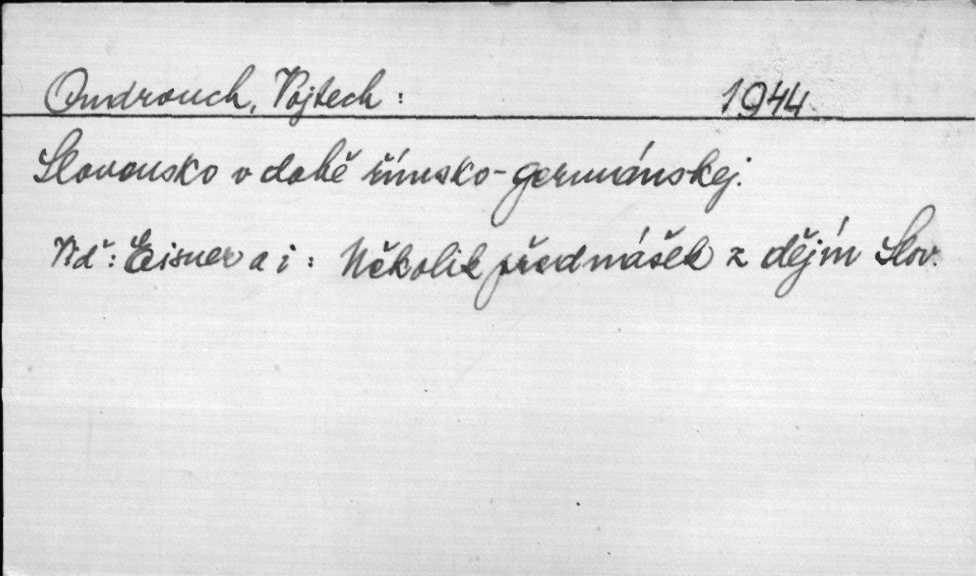 Ondrouch, Vojtech: 1944
Slovensko v době římsko-germánskej.
Viď: Eisner a i: Několik přednášek z dějín Slov.